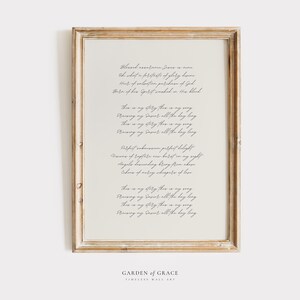 Blessed assurance Jesus is mine
Oh what a foretaste of glory divine
Heir of salvation purchase of God
Born of his Spirit washed in His blood
This is my story this is my song
Praising my Savior all the day long
This is my story this is my song
Praising my Savior all the day long
Perfect submission perfect delight
Visions of rapture now burst on my sight
Angels descending bring from above
Echoes of mercy whispers of love
This is my story this is my song
Praising my Savior all the day long
This is my story this is my song
Praising my Savior all the day long
GARDEN of GRACE
TIMELESS WALL ART